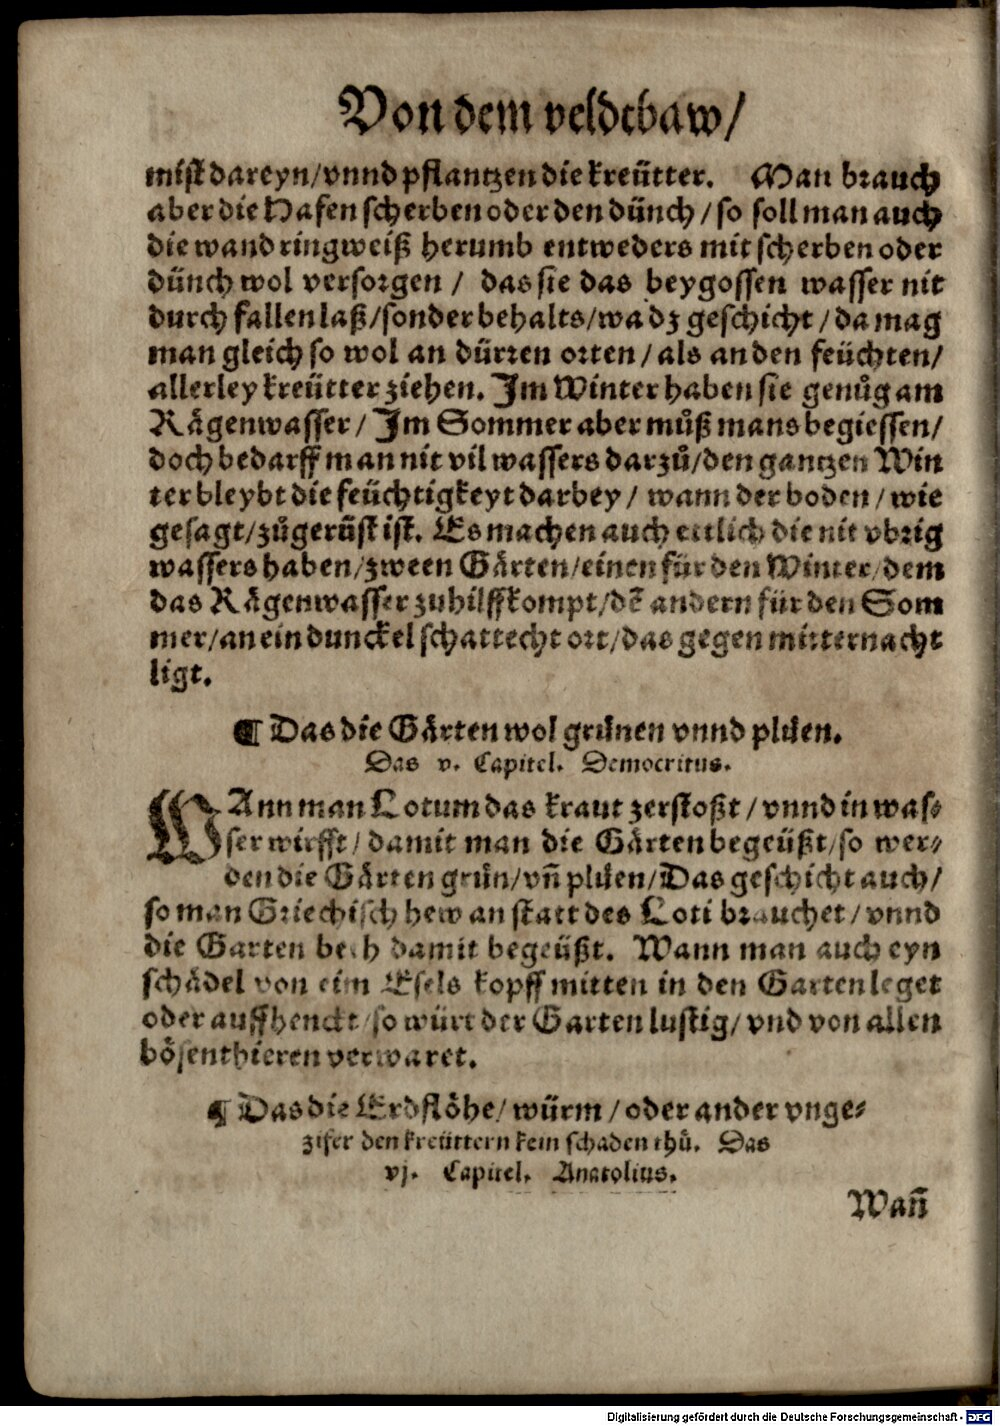 Von dem veldtbaw/
mist dareyn/vnnd pflantzen die kreütter. Man brauch
aber die Hafen scherben oder den dünch/so soll man auch
die wand ringweiß herumb entweders mit scherben oder
dünch wol versorgen / das sie das beygossen wasser nit
durch fallen laß/sonder behalts/wa dz geschicht/da mag
man gleich so wol an dürren orten/als an den feüchten/
allerley kreütter ziehen. Im Winter haben sie genůg am
Rågenwasser/ Im Sommer aber můß mans begiessen/
doch bedarff man nit vil wassers darzů/den gantzen Win
ter bleybt die feüchtigkeyt darbey/ wann der boden/wie
gesagt/zůgerüst ist. Es machen auch ettlich die nit vbrig
wassers haben/zween Gårten/einen für den Winter/dem
das Rågenwasser zuhilff kompt/dē andern für den Som
mer/an ein dunckel schattecht ort/das gegen mitternacht
ligt.
¶ Das die Gårten wol grünen vnnd plüen.
Das v. Capitel. Democritus.
WAnn man Lotum das kraut zerstoßt/vnnd in was-
ser wirfft/damit man die Gårten begeüßt/so wer-
den die Gårten grün/vñ plüen/Das geschicht auch/
so man Griechisch hew an statt des Loti brauchet/vnnd
die Garten beth damit begeüßt. Wann man auch eyn
schådel von eim Esels kopff mitten in den Garten leget
oder auffhenckt/so würt der Garten lustig/vnd von allen
bösen thieren verwaret.
¶ Das die Erdflöhe/würm/oder ander vnge-
zifer den kreüttern kein schaden thů. Das
vj. Capitel. Anatolius.
Wañ
Digitalisierung gefördert durch die Deutsche Forschungsgemeinschaft - DFG